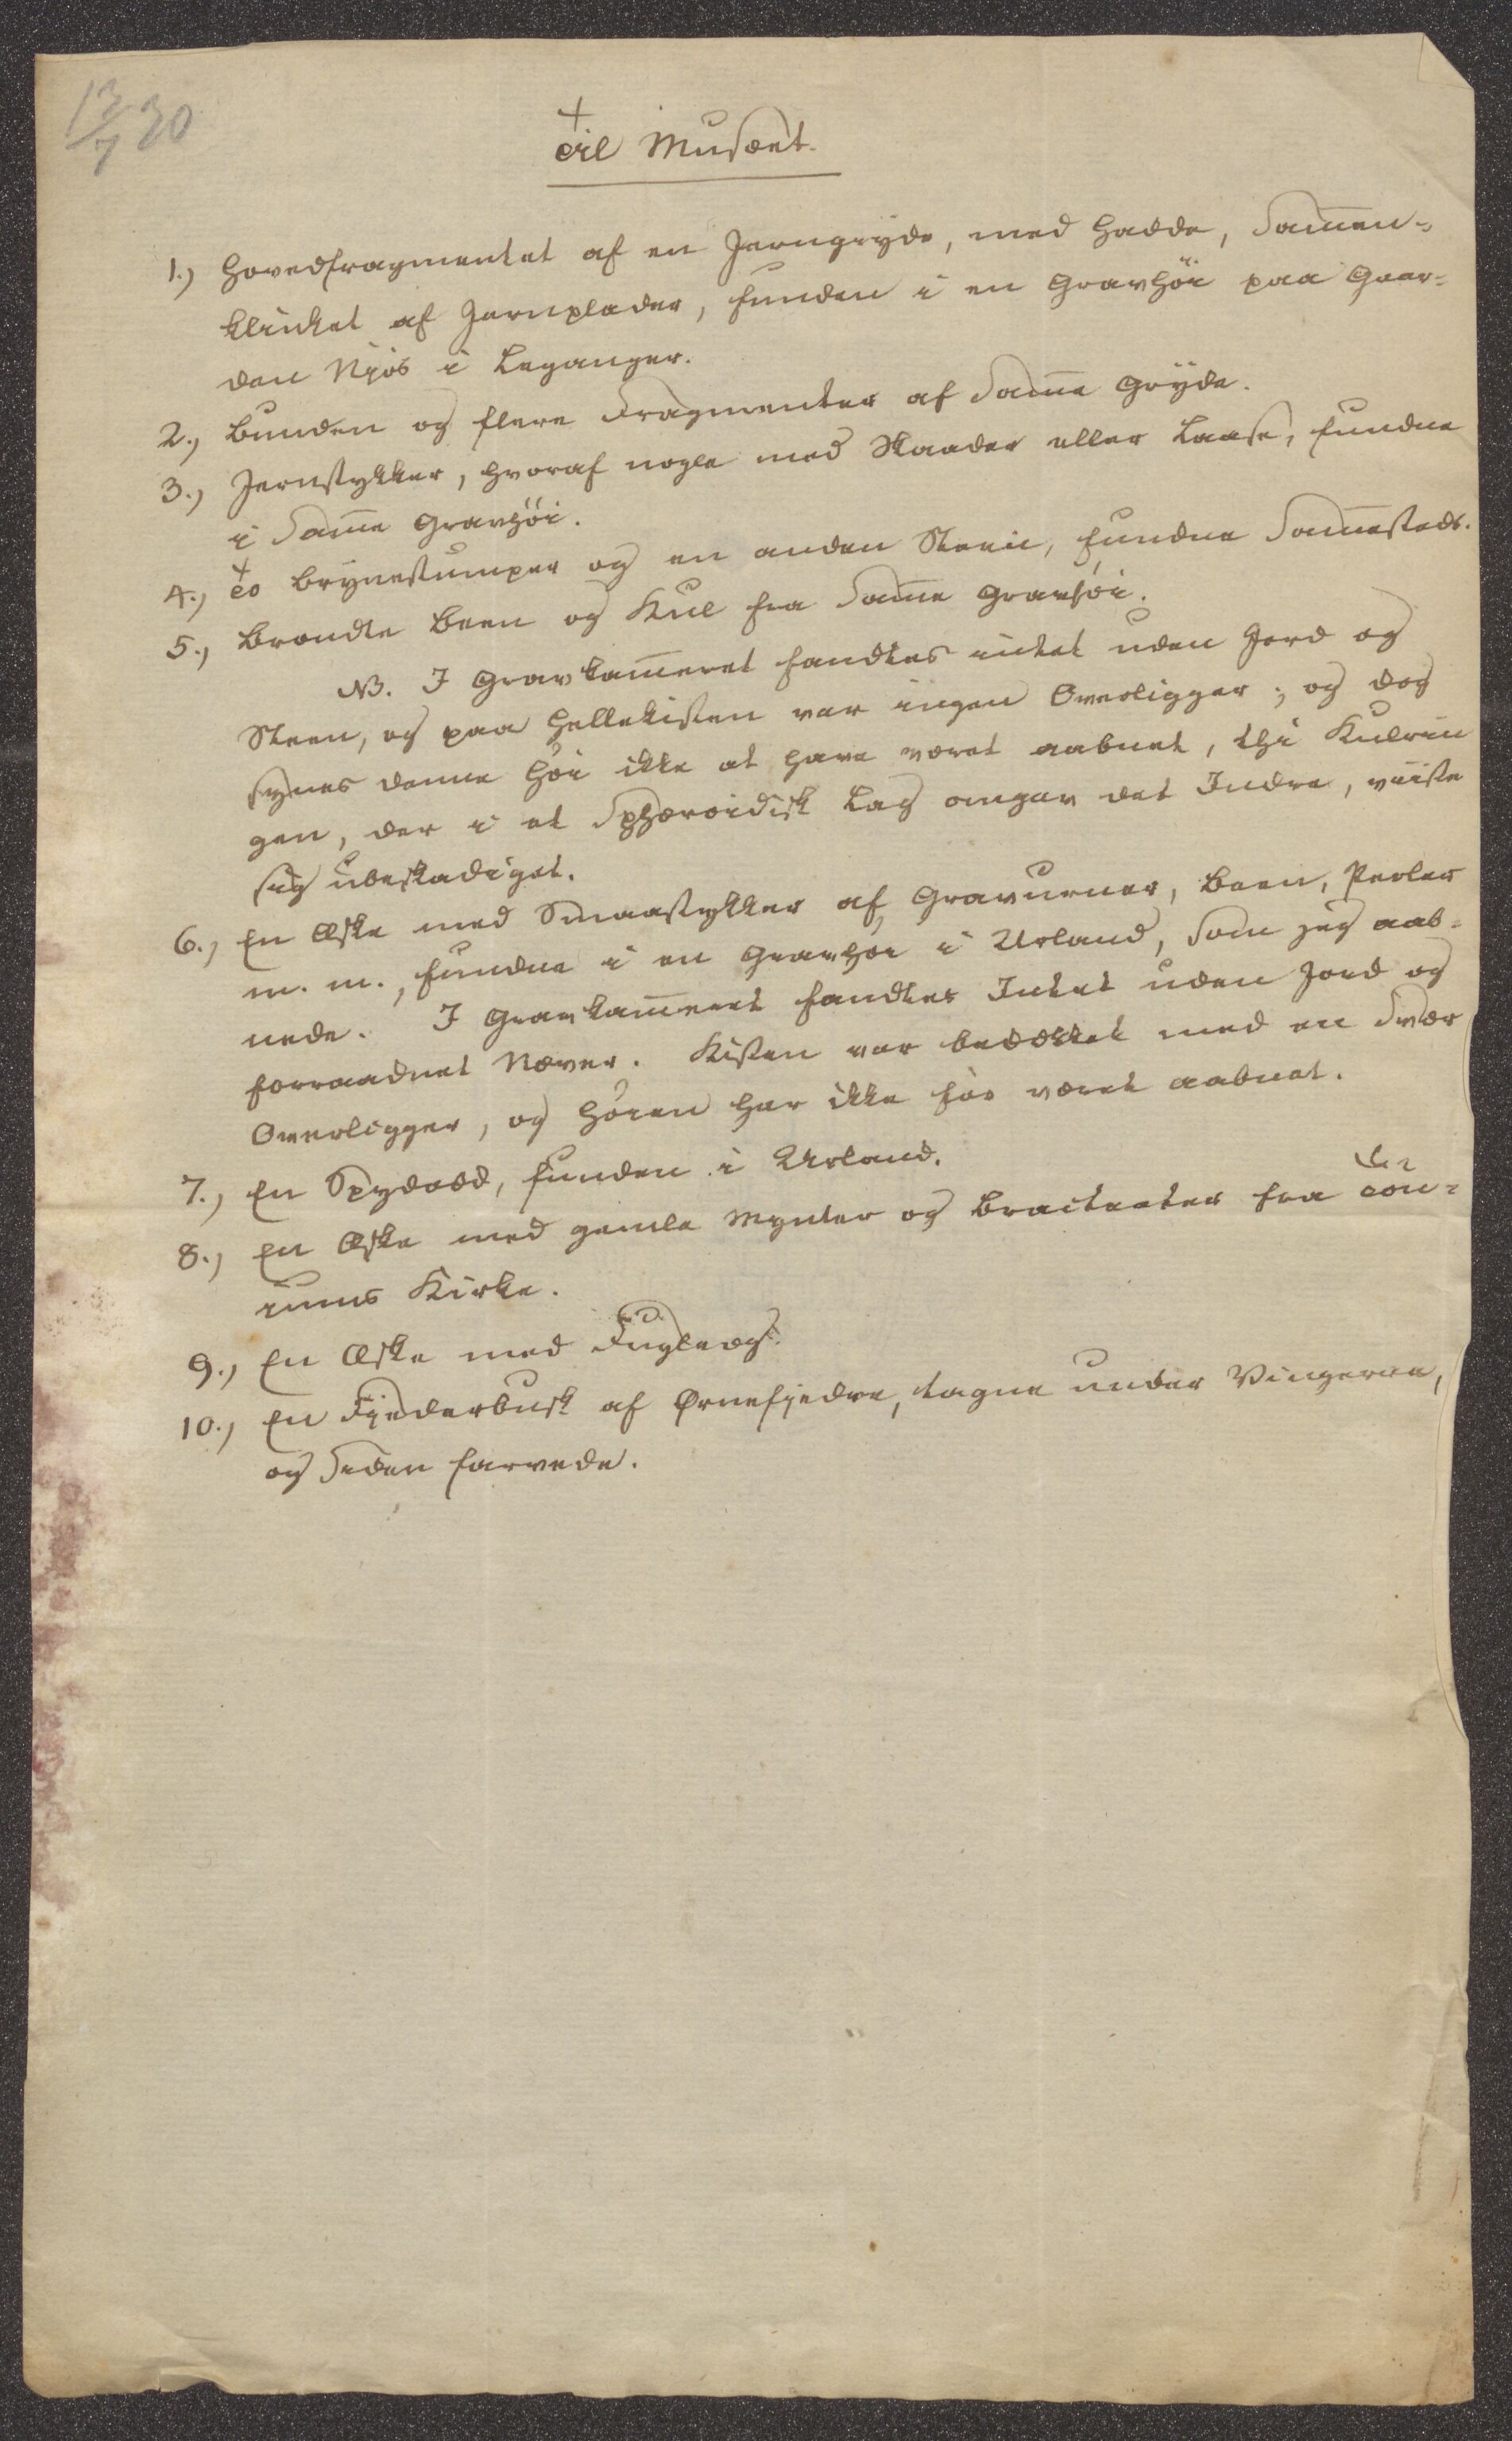 13/7 30
Til Musæet.
1.) Hovedfragmentet af en Jerngryde, med Hadde, sammen-
klinket af Jernplader, funden i en Gravhöi paa Gaar-
den Njös i Leganger.
2.) Bunden og flere Fragmenter af samme Gryde.
3.) Jernstykker, hvoraf nogle med Skaader eller Laase, fundne
i samme Gravhöi.
4.) To Brynestumper og en anden Steen, fundne sammesteds.
5.) Brændte Been og Kul fra samme Gravhöi.
NB. I Gravkammeret fandtes intet uden Jord og
Steen, og paa Hellekisten var ingen Overligger; og dog
synes denne Höi ikke at have været aabnet, thi Kulrin
gen, der i et sphæroidisk Lag omgav det Indre, viiste
sig ubeskadiget.
6.) En Æske med Smaastykker af Gravurner, Been, Perler
m. m., fundne i en Gravhöi i Urland, som jeg aab-
nede. I Gravkammeret fandtes Intet uden Jord og
forraadnet Næver. Kisten var bedækket med en svær
Overligger, og Höien har ikke för været aabnet.
7.) En Spydodd, funden i Urland.
8.) En Æske med gamle Mynter og Bracteater fra Tön-
jums Kirke.
9.) En Æske med Fugleæg.
10.) En Fjederbusk af Ørnefjedre, tagne under Vingerne,
og siden farvede.